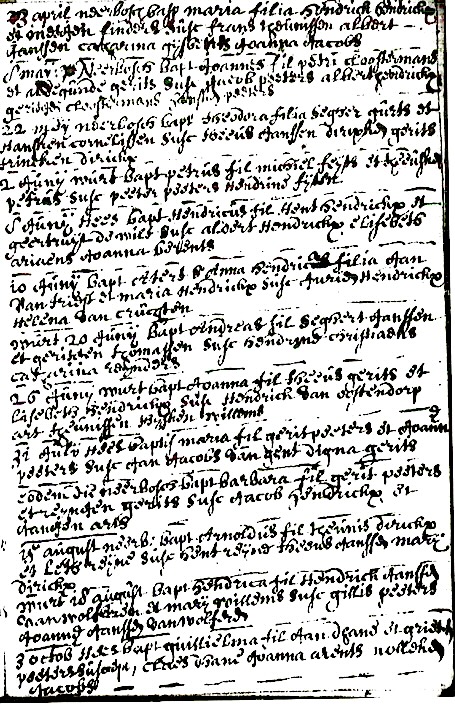 23 april neerbosch bapt maria filia hendrick hendrickx
et meijken linders susc frans theunissen albert
Janssen catharina gijsberts Joanna Jacobs
8 maij Neerbosch bapt Joannes fil petri cloosterman
et aldegunde gerits susc Jacob peeters albert hendrickx
geritien cloostermans Janssen peeters
22 meij neerbosch bapt theodora filia segher gurts et
Hansken cornelissen susc theeus Janssen dirixken gerits
trincken dirickx
2 Junij wurt bapt petrus fil michiel et theunisken
petrus susc peeter peeters Hendrine
8 Junij Hees bapt Henricus fil Hent Hendrickx et
geertruijt de wilt susc aldert Hendrickx elisebeth
ariaens Joanna berents
10 Junij bapt Anna Hendrica filia Jan
van triest et maria Hendrickx susc Jurien Hendrickx
Helena van cruchten
wurt 20 Junij bapt Andreas fil seghert Janssen
et geritken thomassen susc Hendrick christiaens
catharina reijnders
26 Junij wurt bapt Joanna fil theeus gerits et
lijsebeth Hendricx susc Hendrick van oostendorp
art theunissen willems
31 Julij Hees baptis maria fil gerit peeters et Joanna
peeters susc Jan Jacobs van gent digna gerits
eodem die neerbosch bapt barbara fil gerit peeters
et reijntgen gerits susc Jacob hendrickx et
Jantgen arts
15 august neerb bapt Arnoldus fil theunis dirickx
et reijne susc hent reijnd theeus Janssen marij
dirickx
wurt 18 august bapt Hendrica fil Hendrick Janssen
van wolferen et marij willems susc gillis peeters
Joanna Janssen van wolferen
3 octob Hees bapt guillielma fil Jan daane et grietien
peeters susceper, claes daane Joanna arents nolleken
Jacobs